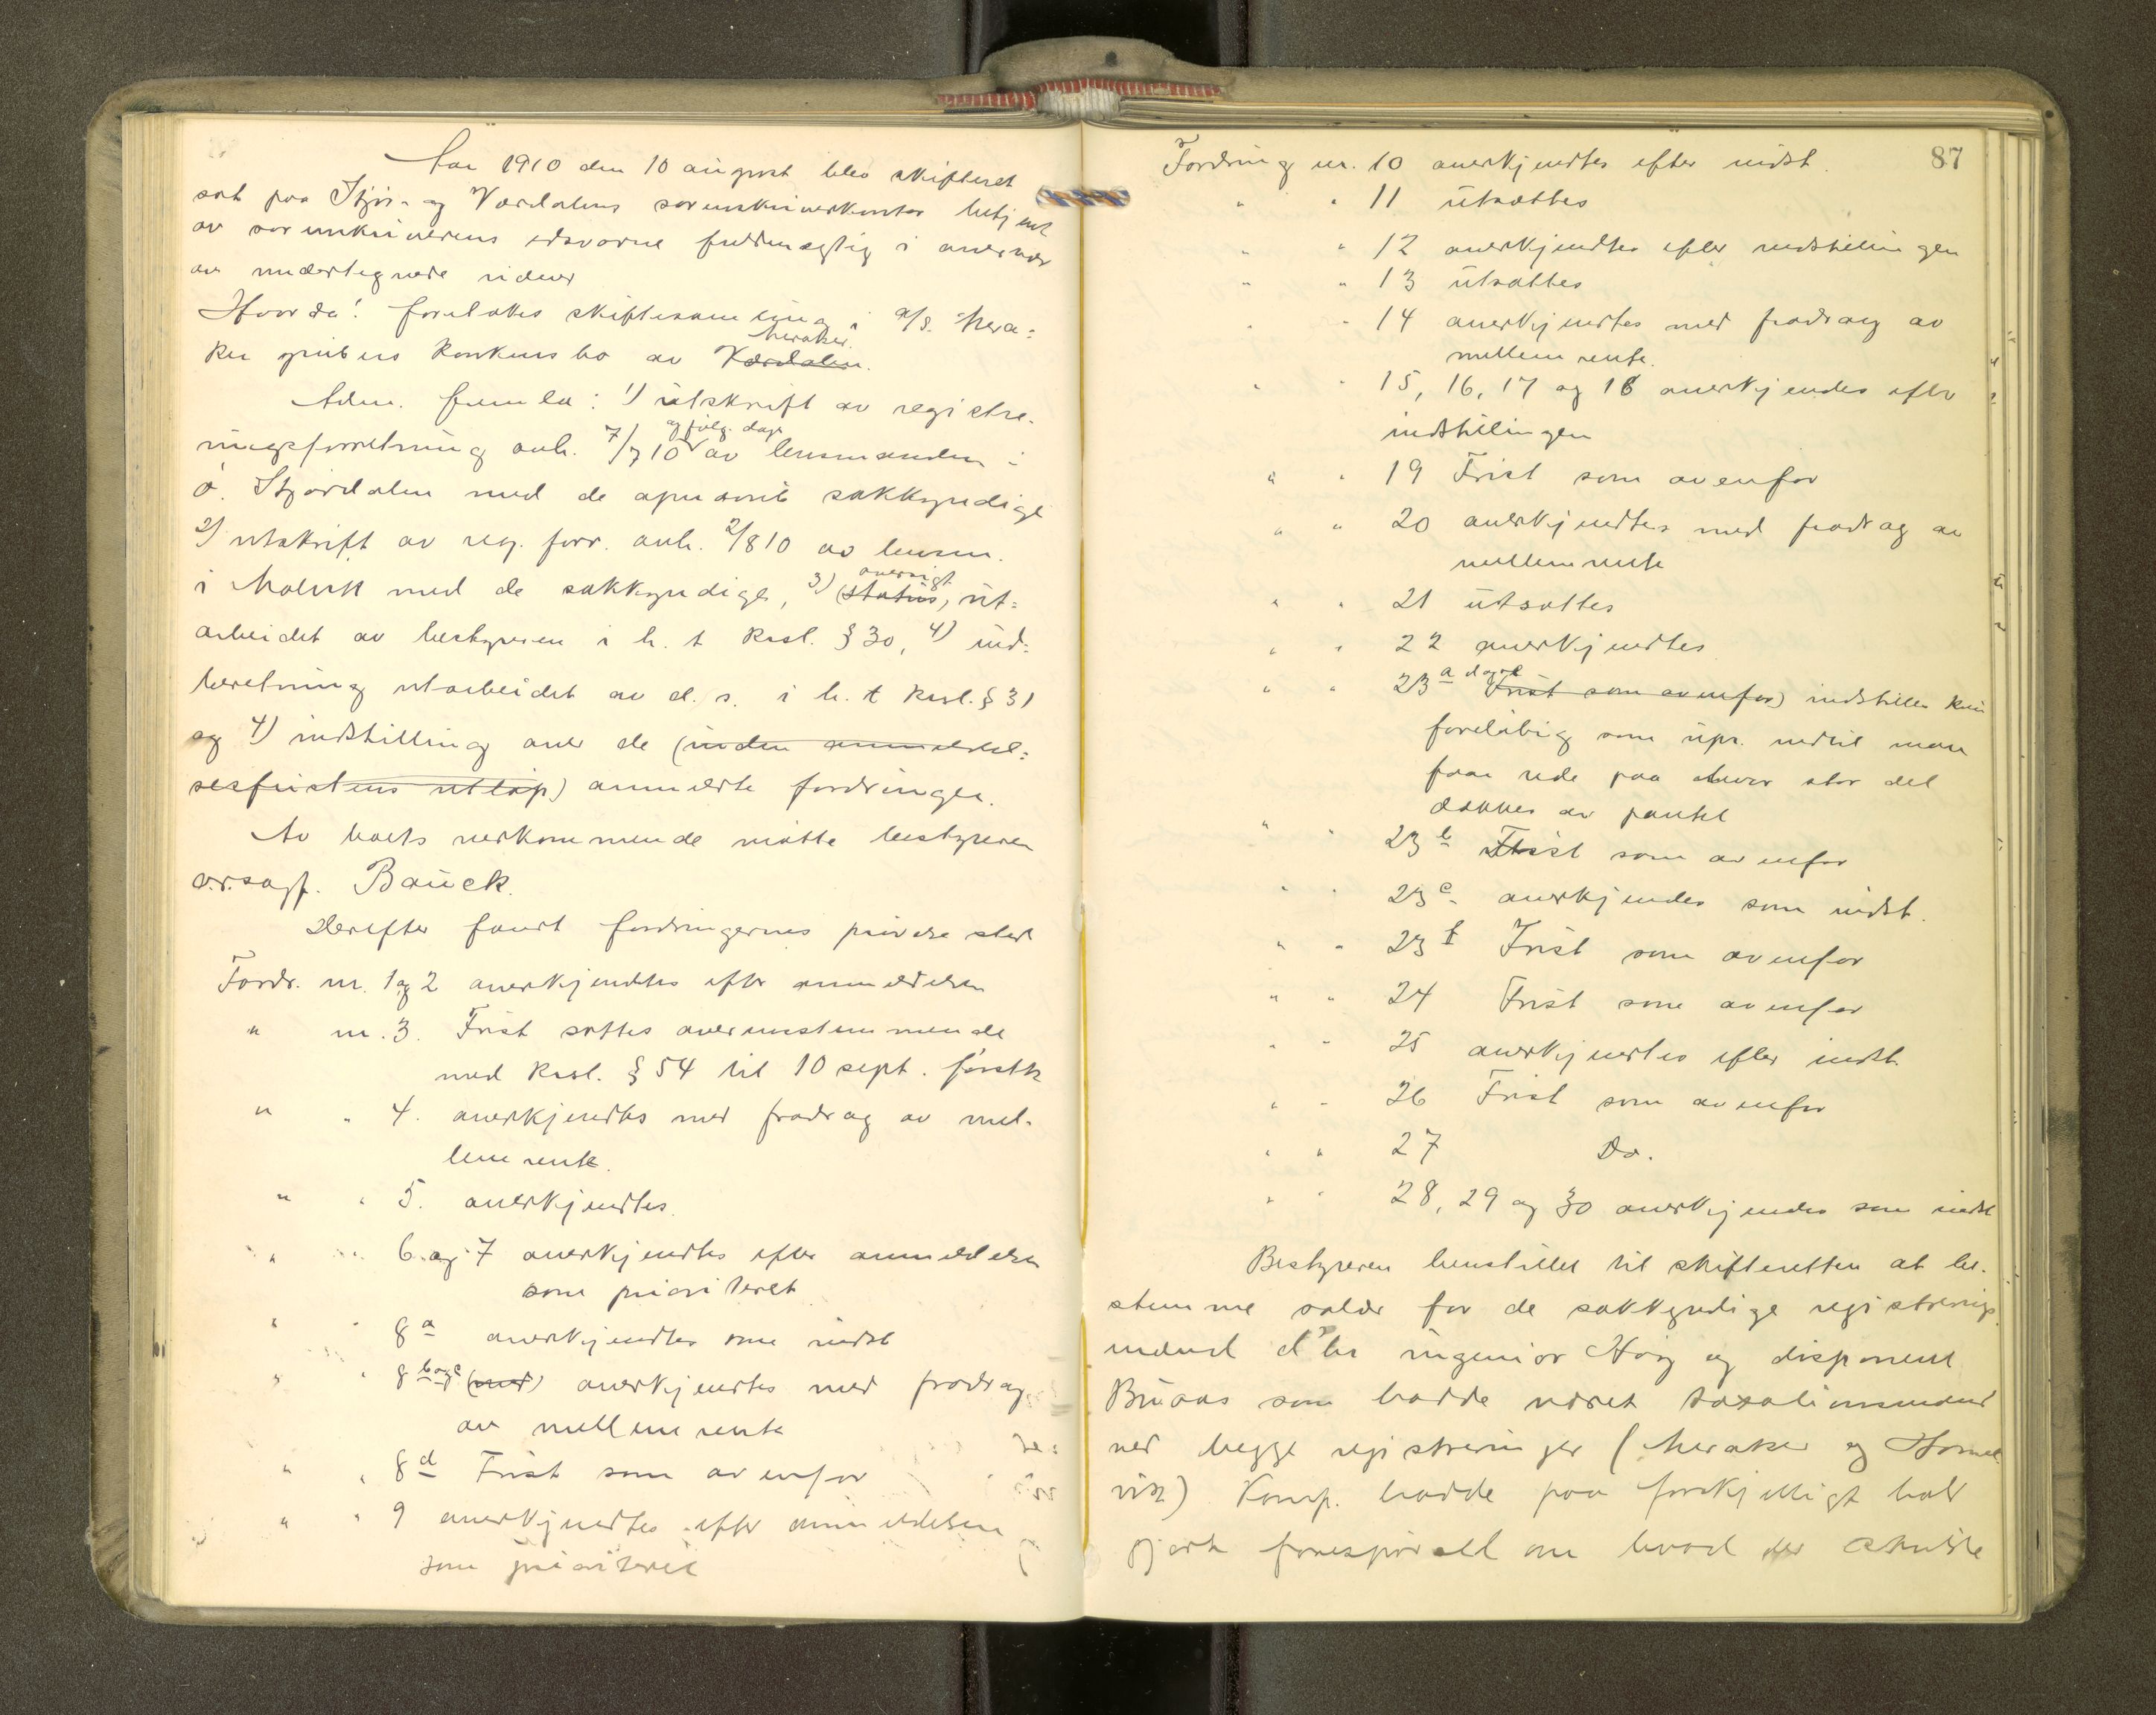 Aar 1910 den 10 august blev skifteret
sat paa Stjør- og Værdalens sorenskriverkontor betjent
av sorenskriverens edsvorne fuldmægtig i overvær
av undertegnede vidner
Hvorda! foretokes skiftesamling i A/S. Mera=
ker grubers konkursbo av Værdalen. Meraker.
Adm. fremla: 1) utskrift av registre-
ringsforretning avh. 7/7 10 og følg. dage av lensmanden i
ø. Stjørdalen med de opnævnte sakkyndige
2) utskrift av reg. forr. avh. 2/8 10 av lensm.
i Malvik med de sakkyndige, 3) (status, oversigt ut=
arbeidet av bestyreren i h. t Krsl. § 30, 4) ind=
beretning utarbeidet av d. s. i h. t Krsl. § 31
og 4) indstilling over de (inden anmeldel=
sesfristens utløp) anmeldte fordringer.
Av boets vedkommende møtte bestyreren
o.r.sagf. Bauck.
Derefter fandt fordringernes prøvelse sted
Fordr. nr. 1 og 2 anerkjendtes efter anmeldelsen
" nr. 3. Frist sattes overensstemmende
med Krsl. § 54 til 10 sept. førstk
" " 4. anerkjendtes med fradrag av mel-
lemrente.
" " 5. anerkjendtes.
" " 6. og 7 anerkjendtes efter anmeldelsen
som prioritert
" " 8 a anerkjendtes som indst
" " 8 b og c (med) anerkjendtes med fradrag
av mellemrente
" " 8 d Frist som ovenfor
" " 9 anerkjendtes efter anmeldelsen
som prioriteret
87
Fordring nr. 10 anerkjendtes efter indst.
" " 11 utsattes
" " 12 anerkjendtes efter indstillingen
" " 13 utsattes
" " 14 anerkjendtes med fradrag av
mellemrente.
" " 15, 16, 17 og 18 anerkjendes efter
indstillingen
" " 19 Frist som ovenfor
" " 20 anerkjendtes med fradrag av
mellemrente
" " 21 utsattes
" " 22 anerkjendtes
" " 23 a Frist som ovenfor) indstilles kun
foreløbig som upr. indtil man
faar rede paa hvor stor del
dækkes av pantet
" " 23 b Frist som ovenfor
" " 23 c anerkjendes som indst.
" " 23 f Frist som ovenfor
" " 24 Frist som ovenfor
" " 25 anerkjendtes efter indst.
" " 26 Frist som ovenfor
" " 27 Do.
" " 28, 29 og 30 anerkjendes som indst
Bestyreren henstillet til skifteretten at be-
stemme salær for de sakkyndige registrerings
mænd d'hr ingeniør Høy og disponent
Buaas som hadde været taxationsmænd
ved begge registreringer (Meraker og Hommel
vik) Komp. hadde paa forskjelligt hold
gjort forespørsel om hvad der skulde